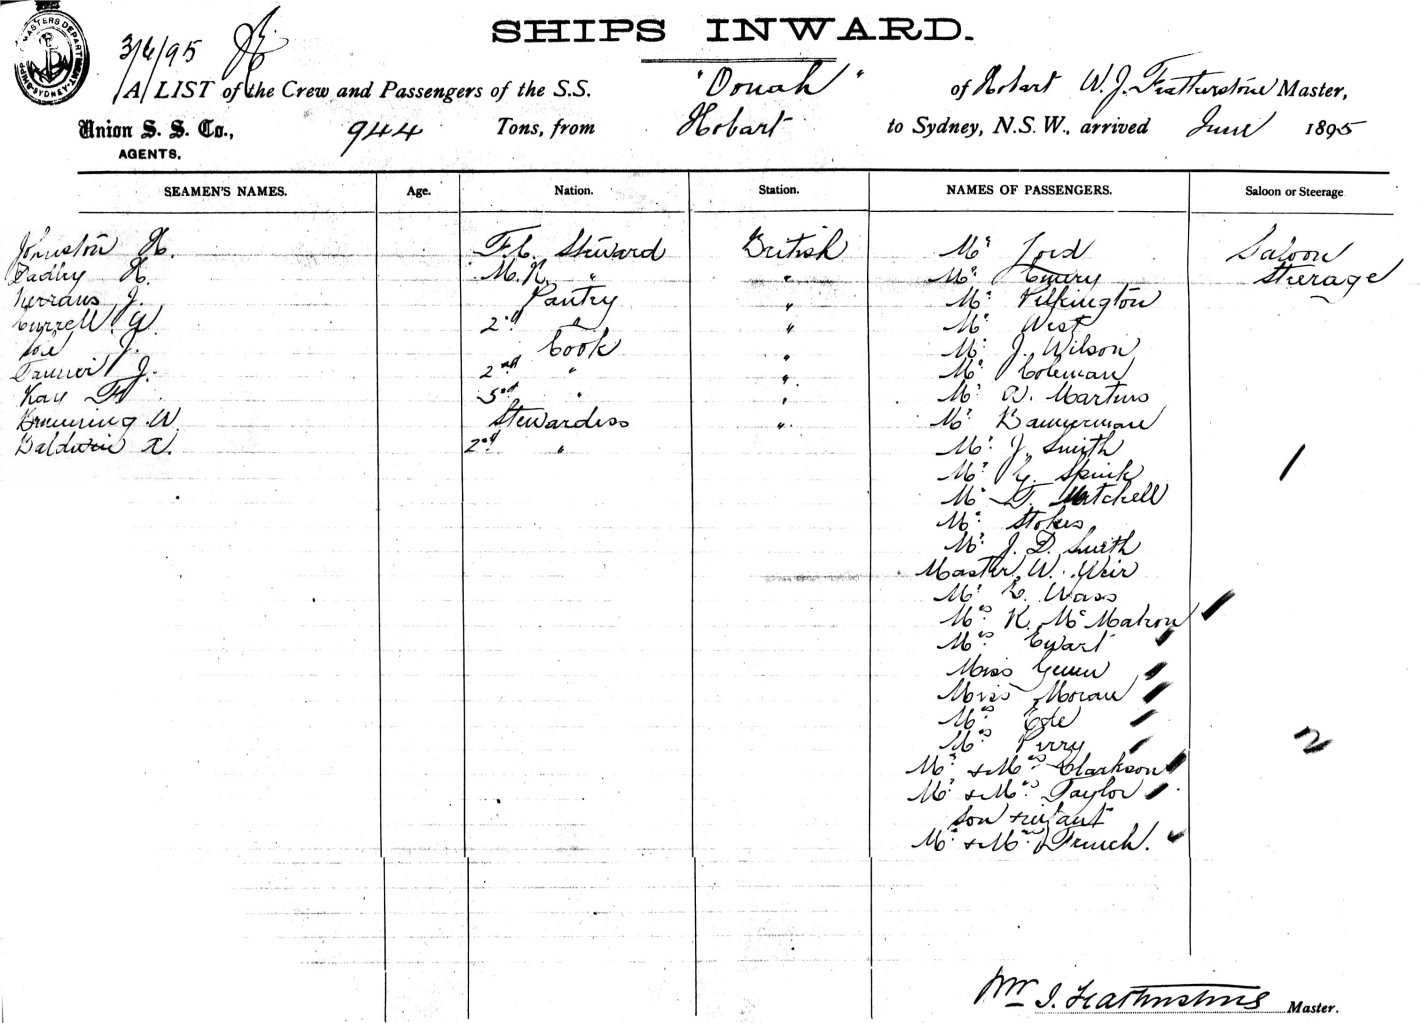 SHIPS INWARD.
3/6/95
A LIST of the Crew and Passengers of the S.S. "Oonah" of Hobart W. J. Featherstone Master,
Union S. S. Co., 944 Tons, from Hobart to Sydney, N.S.W., arrived June 1895
AGENTS.
SEAMEN'S NAMES. Age. Nation. Station. NAMES OF PASSENGERS. Saloon or Steerage
Johnston H. F.C. Steward British Mr Lord Saloon
Dadley H. M.R. " " Mr Emery Steerage
Verrans J. Pantry " Mr Pilkington
Currell G. 2nd " " Mr West
J. Cook " Mr J. Wilson
J. 2nd " " Mr Coleman
Kay F. 3rd " " Mr Martins
Browning W. Stewardess " Mr Bannerman
Baldwin A. 2nd " Mr J. Smith
1
Mr G. Spink
Mr Mitchell
Mr Stokes
Mr J. D. Smith
Master W. Weir
Mr E. Wass
Mrs K. McMahon
Mrs Ewart
Miss
Miss Moran
Mrs Cole
Mrs Perry
2
Mr & Mrs Clarkson
Mr & Mrs Taylor
son & infant
Mr & Mrs French.
Wm J. Featherstone Master.